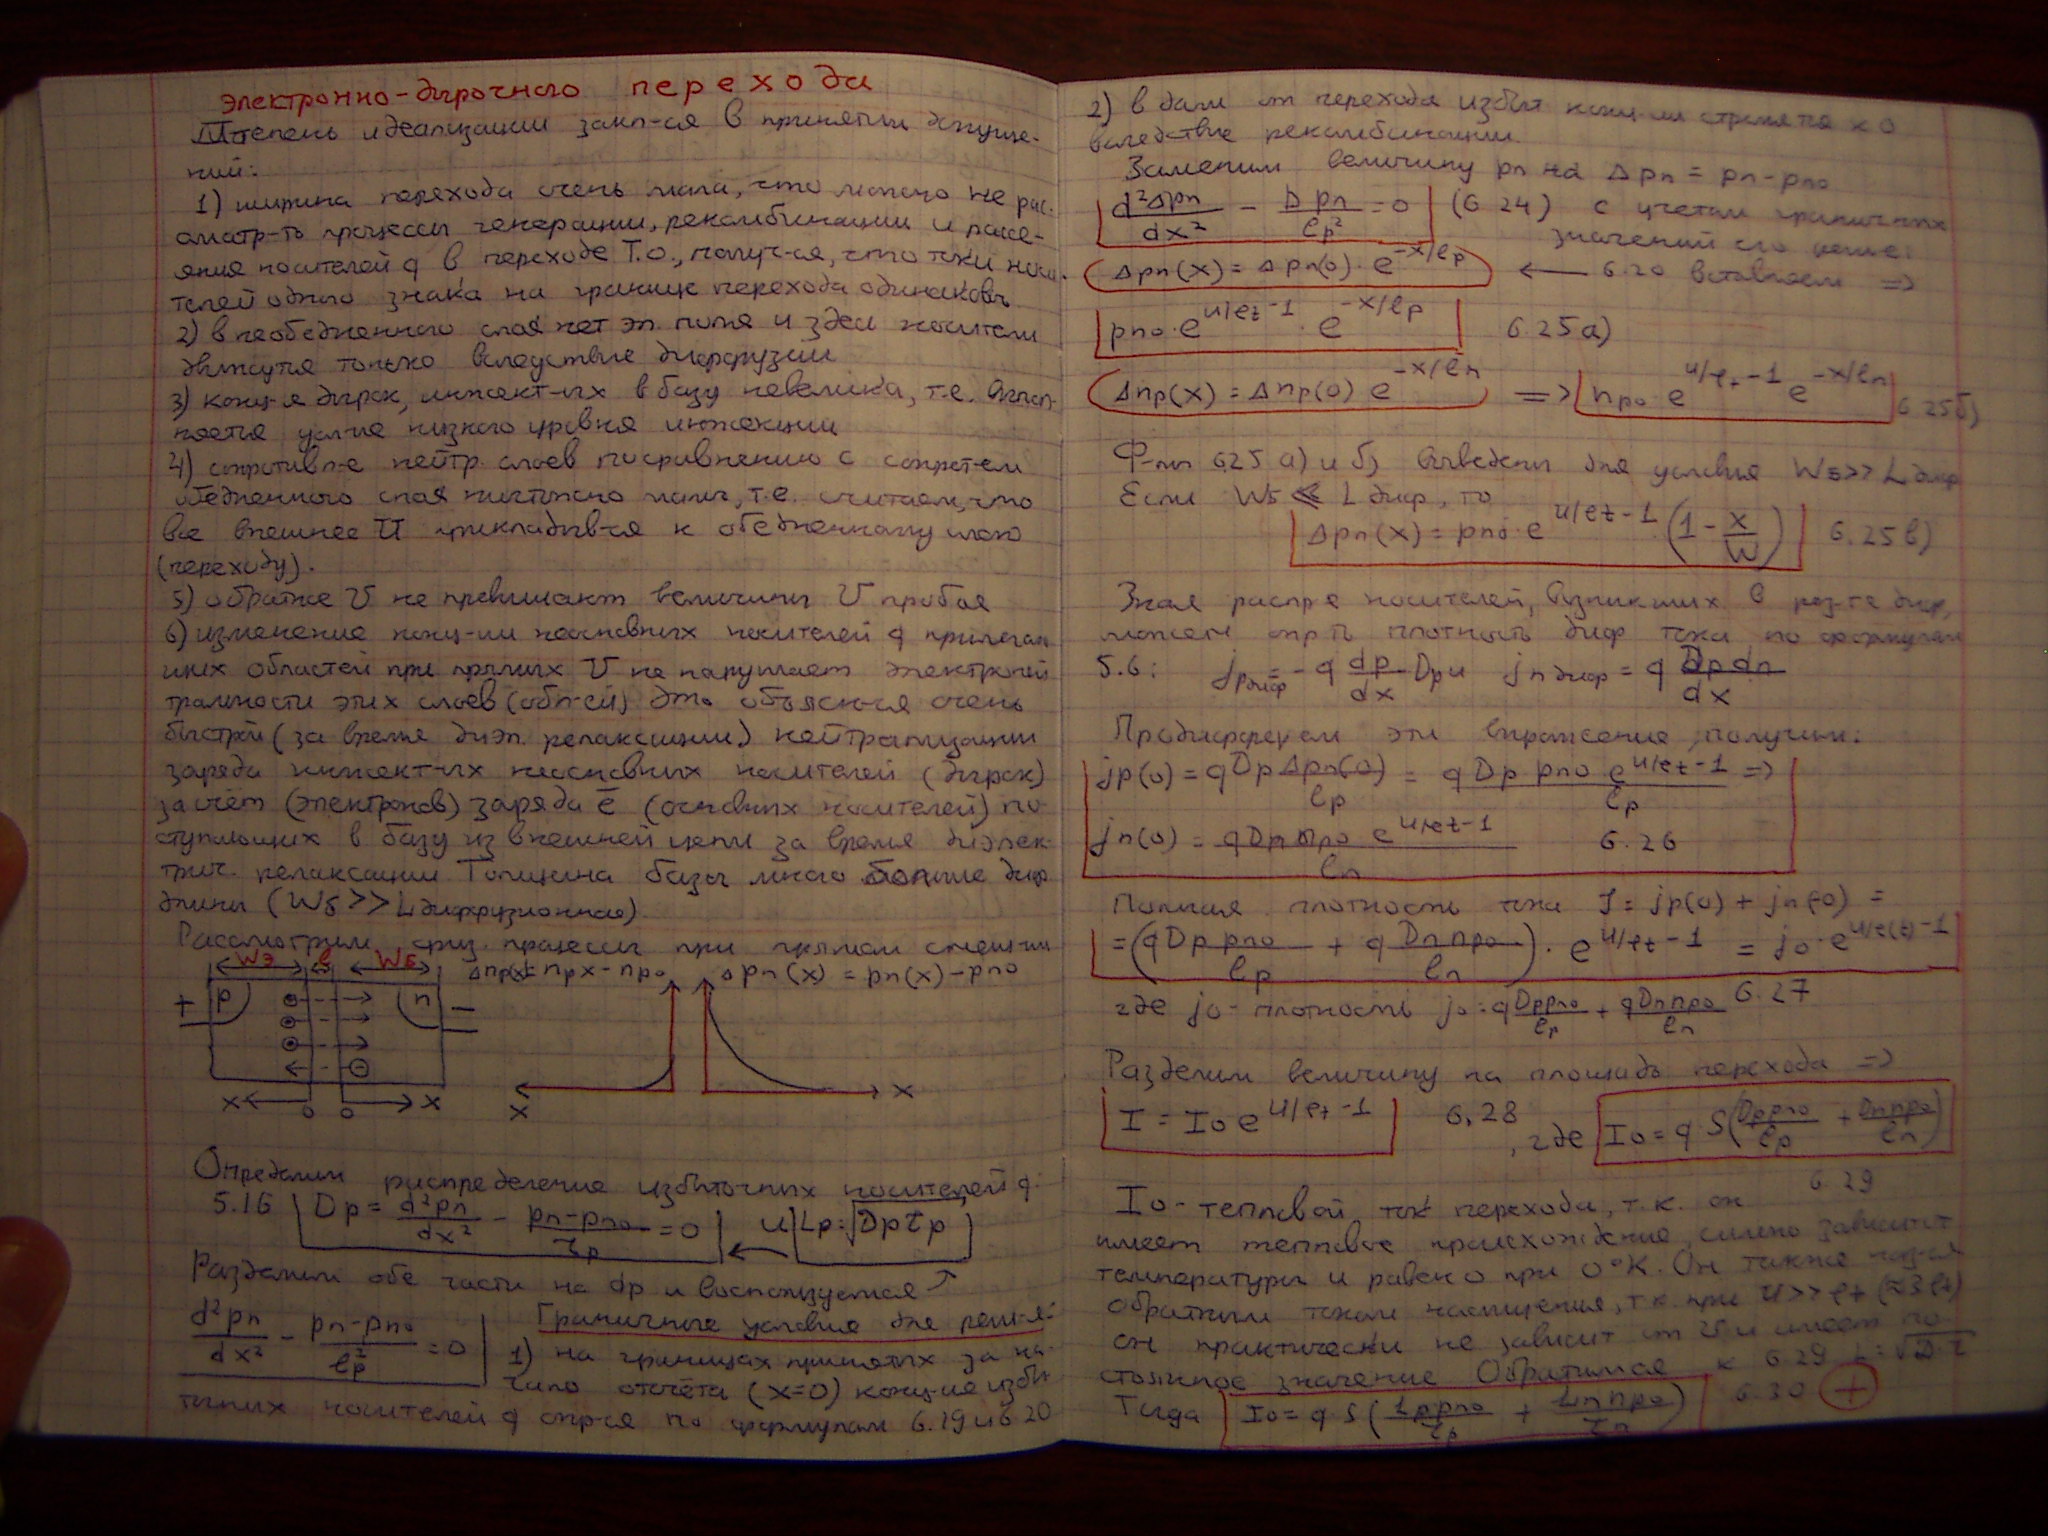 электронно-дырочного перехода
Степень идеализации закл-ся в принятии допуще-
ний:
1) ширина перехода очень мала, что можно не рас-
сматр-ть процессы генерации, рекомбинации и рассе-
яния носителей q в переходе Т.О., получ-ся, что токи носи-
телей одного знака на границе перехода одинаковы
2) в необедненного слоя нет эл. поля и здесь носители
движутся только вследствие диффузии
3) конц-я дырок, инжект-ых в базу невелика, т.е. выпол-
няется условие низкого уровня инжекции
4) сопротивл-е нейтр. слоев по сравнению с сопрот-ем
обедненного слоя ничтожно мало, т.е. считаем, что
все внешнее U прикладыв-ся к обедненному слою
(переходу).
5) обратные U не превышают величины U пробоя
6) изменение конц-ии неосновных носителей q прилегаю
щих областей при прямых U не нарушает электроней
тральности этих слоев (обл-ей) Это объясн-ся очень
быстрой (за время диэл. релаксации) нейтрализации
заряда инжект-ых неосновных носителей (дырок)
за счёт (электронов) заряда e̅ (основных носителей) по-
ступающих в базу из внешней цепи за время диэлек-
трич. релаксации Толщина базы много больше диф
длины (Wб >> Lдиффузионная)
Рассмотрим физ. процессы при прямом смещ-ии
Wэ l Wб Δnp(x)= npx - npo Δpn(x) = pn(x) - pno
+ p n -
x 0 0 x x x
Определим распределение избыточных носителей q:
5.16 Dp = d²pn/dx² - (pn-pno)/τp = 0 и Lp = √Dpτp
Разделим обе части на dp и воспользуемся
d²pn/dx² - (pn-pno)/ℓp² = 0 Граничные условия для реш-я:
1) на границах принятых за на-
чало отсчёта (x=0) конц-ия избы-
точных носителей q опр-ся по формулам 6.19 и 6.20
2) в дали от перехода избыт конц-ии стремятся к 0
вследствие рекомбинации.
Заменим величину pn на Δpn = pn-pno
d²Δpn/dx² - Dpn/ℓp² = 0 (6.24) с учетом граничных
значений его реше:
Δpn(x) = Δpn(0) · e^(-x/ℓp) ← 6.20 вставляем =>
pno · e^(u/φt -1) · e^(-x/ℓp) 6.25а)
Δnp(x) = Δnp(0) e^(-x/ℓn) => npo e^(u/φt -1) e^(-x/ℓn) 6.25б)
Ф-лы 6.25 а) и б) выведены для условия Wб >> Lдиф
Если Wб << L диф, то
Δpn(x) = pno · e^(u/φt -1) (1 - x/W) 6.25в)
Зная распр-е носителей, возникших в рез-те диф,
можем опр-ть плотность диф тока по формулам
5.6: jp диф = -q dp/dx Dp и jn диф = q Dp dn/dx
Продифферем эти выражение, получим:
jp(0) = qDpΔpn(0)/ℓp = qDp pno e^(u/φt -1)/ℓp =>
jn(0) = qDn npo e^(u/φt -1)/ℓn 6.26
Полная плотность тока J = jp(0) + jn(0) =
= (qDp pno/ℓp + q Dn npo/ℓn) · e^(u/φt -1) = jo · e^(u/φ(t) -1)
где jo - плотность jo = qDppno/ℓp + qDnnpo/ℓn 6.27
Разделим величину на площадь перехода =>
I = Io e^(u/φt -1) 6,28, где Io = q·S(Dppno/ℓp + Dnnpo/ℓn)
6.29
Io - тепловой ток перехода, т.к. он
имеет тепловое происхождение, сильно зависит
температуры и равен 0 при 0°К. Он также наз-ся
обратным током насыщения, т.к. при U >> φt (≈3φt)
он практически не зависит от U и имеет по-
стоянное значение Обратимся к 6.29 L = √D·τ
Тогда Io = q·S(Lppno/τp + Lnnpo/τn) 6.30 +